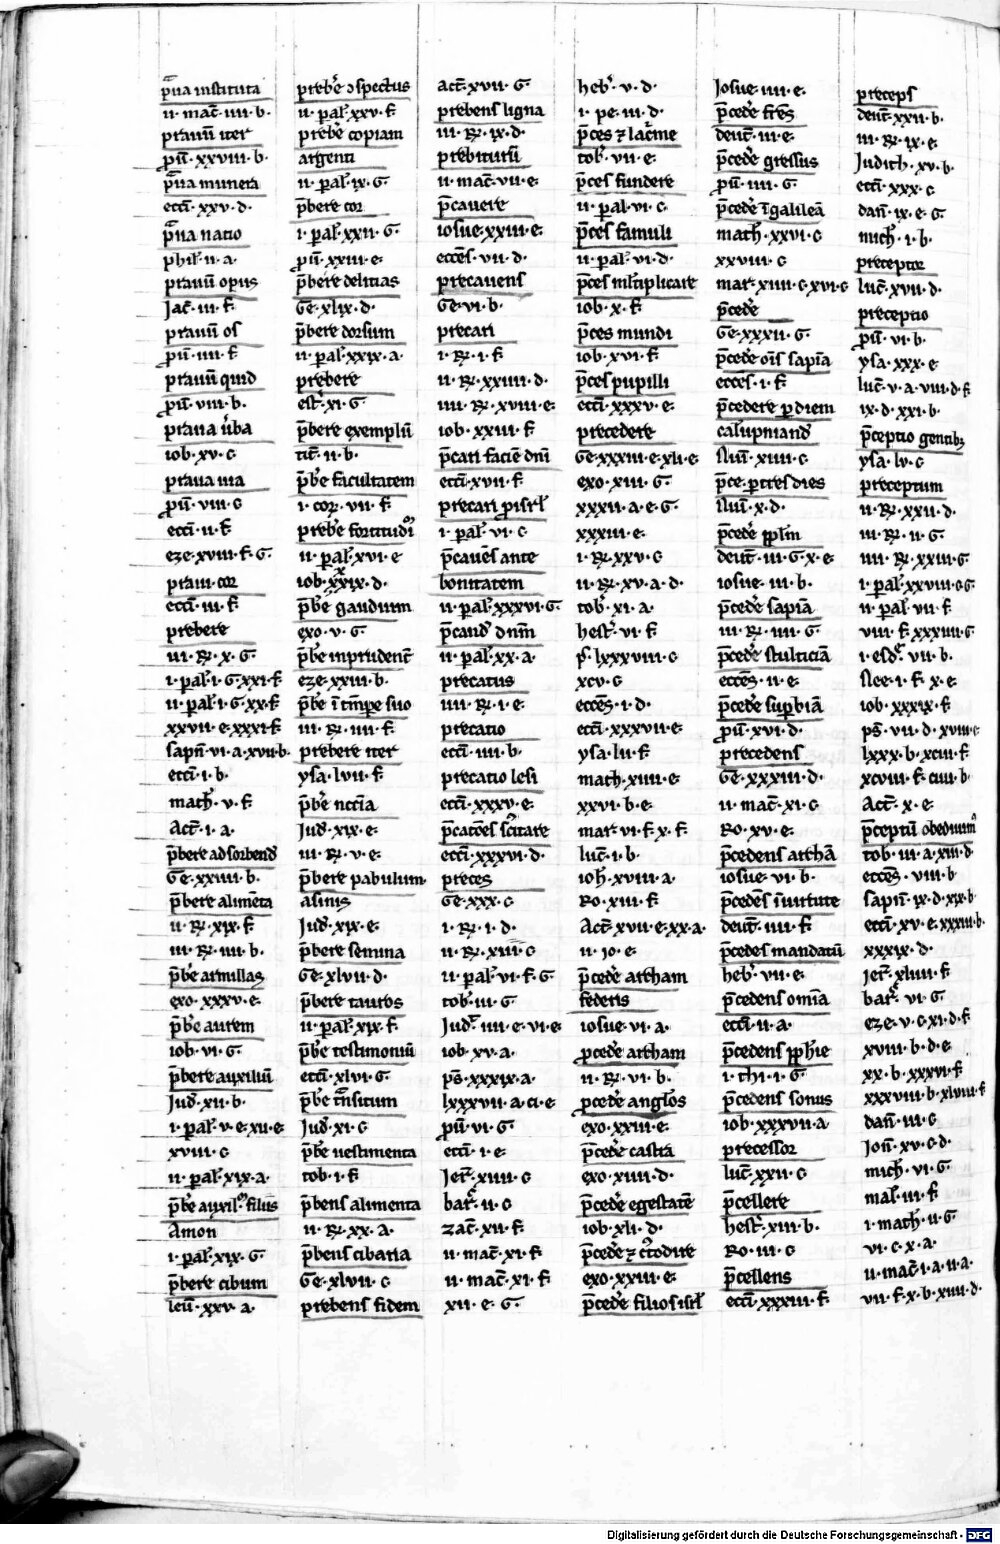 p̄ua instituta
ii· mac̄· iiii· b·
prauū iter
ꝓū· xxviii· b·
p̄ua munera
eccī· xxv· d·
p̄ua natio
phil̄· ii· a·
prauū opus
Jac̄· iii· f
prauū os
ꝓū· iiii· f
prauū quid
ꝓū· viii· b·
praua ūba
iob· xv· c
praua uia
ꝓū· viii· c
eccī· ii· f
eze· xviii· f· G·
praui cor
eccī· iii· f
prebere
iii· R̄· x· G·
i· pal̄· i· G· xxi· f
ii· pal̄· i· G· xx· f
xxvii· e· xxxi· f
sapn̄· vi· a· xvii· b·
eccī· i· b·
math̄· v· f
Act̄· i· a·
p̄bere ad sorbend̄
Ge· xxiiii· b·
p̄bere alimēta
ii· R̄· xix· f
iii· R̄· iiii· b·
p̄be᷑ armillas
exo· xxxv· e·
p̄be᷑ aurem
iob· vi· G·
p̄bere auxiliū
Jud̄· xii· b·
i· pal̄· v· e· xii· e
xviii· c
ii· pal̄· xix· a·
p̄be᷑ auxil̄· filiis
Amon
i· pal̄· xix· G·
p̄bere cibum
leuī· xxv· a·
prebe᷑ ꝯspectus
ii· pal̄· xxv· f
prebe᷑ copiam
argenti
ii· pal̄· ix· G·
p̄bere cor
i· pal̄· xxii· G·
ꝓū· xxiii· e·
p̄bere delitias
Ge· xlix· d·
p̄bere dorsum
ii· pal̄· xxix· a·
prebere
est̄· xi· G·
p̄bere exemplū
tit̄· ii· b·
p̄be᷑ facultatem
i· cor̄· vii· f
prebe᷑ fortitudī
ii· pal̄· xvi· e
iob· xxix· d·
p̄be᷑ gaudium
exo· v· G·
p̄be᷑ inprudent̄
eze· xxiii· b·
p̄be᷑ ī tēpe suo
iii· R̄· iiii· f
prebere iter
ysa· lvii· f
p̄be᷑ nccīa
Jud̄· xix· e·
iii· R̄· v· e·
p̄bere pabulum·
asinis
Jud̄· xix· e·
p̄bere semina
Ge· xlvii· d·
p̄bere tauros
ii· pal̄· xix· f·
p̄be᷑ testimoniū
eccī· xlvi· G·
p̄be᷑ trāsitum
Jud̄· xi· c
p̄be᷑ uestimenta
tob· i· f
p̄bens alimenta
ii· R̄· xx· a·
p̄bens cibaria
Ge· xlvii· c
prebens fidem
act̄· xvii· G·
prebens ligna
iii· R̄· ix· d·
prebiturū
ii· mac̄· vii· e·
p̄cauere
iosue· xxiii· e·
ecces̄· vii· d·
precauens
Ge· vi· b·
precari
i· R̄· i· f
ii· R̄· xxiiii· d·
iiii· R̄· xviii· e·
iob· xxiii· f
p̄cari faciē dn̄i
eccī· xvii· f
precari ꝓ isrl̄
i· pal̄· vi· c
p̄caue᷑s ante
bonitatem
ii· pal̄· xxxvi· G·
p̄cand̄ dn̄m
ii· pal̄· xx· a·
precatus
iiii· R̄· i· e·
precatio
eccī· iiii· b·
precatio lesi
eccī· xxxv· e·
p̄catōes sc̄itare
eccī· xxxvi· d·
preces
Ge· xxx· c
i· R̄· i· d·
ii· R̄· xxiii· c
ii· pal̄· vi· f· G
tob̄· iii· G·
Jud̄· iiii· e· vi· e·
iob· xv· a·
ps̄· xxxix· a·
lxxxvii· a· ci· e·
ꝓū· vi· G·
eccī· i· e·
Jer̄· xiiii· c
bar̄· ii· c
zac̄· xii· f
ii· mac̄· xi· f
ii· mac̄· xi· f
xii· e· G·
heb̄· v· d·
i· pe· iii· d·
p̄ces ⁊ lac̄me
tob̄· vii· e·
p̄ces fundere
ii· pal̄· vi· c
p̄ces famuli
ii· pal̄· vi· d·
p̄ces ml̄tiplicare
iob· x· f
p̄ces mundi
iob· xvi· f
p̄ces pupilli
eccī· xxxv· e·
precedere
Ge· xxxiii· e· xli· e
exo· xiii· G·
xxxii· a· e· G·
xxxiii· e·
i· R̄· xxv· c
ii· R̄· xv· a· d·
tob· xi· a·
hest̄· vi· f
ps̄· lxxxviii· c
xcv· c
ecces̄· i· d·
eccī· xxxvii· e·
ysa· lii· f
math· xiiii· e·
xxvi· b· e·
mar· vi· f· x· f
luc̄· i· b·
ioh̄· xviii· a·
Ro· xii· f
Act̄· xvii· e· xx· a·
ii· io· e·
p̄cede᷑ archam
federis
iosue· vi· a·
ꝓcede᷑ archam
ii· R̄· vi· b·
ꝓcede᷑ angl̄os
exo· xxiii· e·
p̄cede᷑ castra
exo· xiiii· d·
p̄cede᷑ egestatē
iob· xli· d·
p̄cede᷑ ⁊ cc̄odire
exo· xxiii· e·
p̄cede᷑ filios isrl̄
Josue· iiii· e·
p̄cede᷑ fr̄es
deut̄· iii· e·
p̄cede᷑ gressus
ꝓū· iiii· G·
p̄cede᷑ ī galileā
math̄· xxvi· c
xxviii· c
mar· xiiii· c· xvi· c
p̄cede᷑
Ge· xxxii· G·
p̄cede᷑ oīs sapīa
ecces̄· i· f
p̄cedere ꝑ diem
calūpniand̄
Nūi· xiiii· c
p̄ce· ꝑ tres dies
Nūi· x· d·
p̄cede᷑ ppl̄m
deut̄· iii· G· x· e·
iosue· iii· b·
p̄cede᷑ sapīa
iii· R̄· iiii· G·
p̄cede᷑ stulticiā
ecces̄· ii· e·
p̄cede᷑ suꝑbiā
ꝓū· xvi· d·
precedens
Ge· xxxiii· d·
ii· mac̄· xi· c
Ro· xv· e·
p̄cedens archā
iosue· vi· b·
p̄cedēs ī uirtute
deut̄· iiii· f
p̄cedēs mandatū
heb̄· vii· e·
p̄cedens omīa
eccī· ii· a·
p̄cedens ꝓph̄ie
i· thi· i· G·
p̄cedens sonus
iob· xxxvii· a
precessor
luc̄· xxii· c
p̄cellere
hest̄· xiii· b·
Ro· iii· c
p̄cellens
eccī· xxxiii· f·
preceps
deut̄· xxii· b·
iii· R̄· ix· e·
Judith· xv· b·
eccī· xxx· c
dan̄· ix· e· G·
mich̄· i· b·
preceptor
luc̄· xvii· d·
preceptio
ꝓū· vi· b·
ysa· xxx· e·
luc̄· v· a· viii· d· f
ix· d· xxi· b·
p̄ceptio gentibꝫ
ysa· lv· c
preceptum
ii· R̄· xxii· d·
iii· R̄· ii· G·
iiii· R̄· xxiii· G·
i· pal̄· xxviii· c· G
ii· pal̄· vii· f
viii· f· xxxiiii· G
i· esd̄· vii· b·
Nee· i· f· x· e·
iob· xxxix· f
ps̄· vii· d· xviii· e
lxxx· b· xciii· f
xcviii· f· ciiii· b·
Act̄· x· e·
p̄ceptū obediuim᷑
tob· iii· a· xiii· d·
ecces̄· viii· b·
sapn̄· ix· d· xix· b·
eccī· xv· e· xxxiii· b·
xxxix· d·
jer̄· xliiii· f
bar̄· vi· G·
eze· v· c· xi· d· f
xviii· b· d· e
xx· b· xxxvi· f
xxxviii· b· xlviii· f
dan̄· iii· c
Jon̄· xv· c· d·
mich̄· vi· G·
mal̄· iii· f
i· math̄· ii· G·
vi· c· x· a·
ii· mac̄· i· a· ii· a·
vii· f· x· b· xiiii· d·
Digitalisierung gefördert durch die Deutsche Forschungsgemeinschaft - DFG